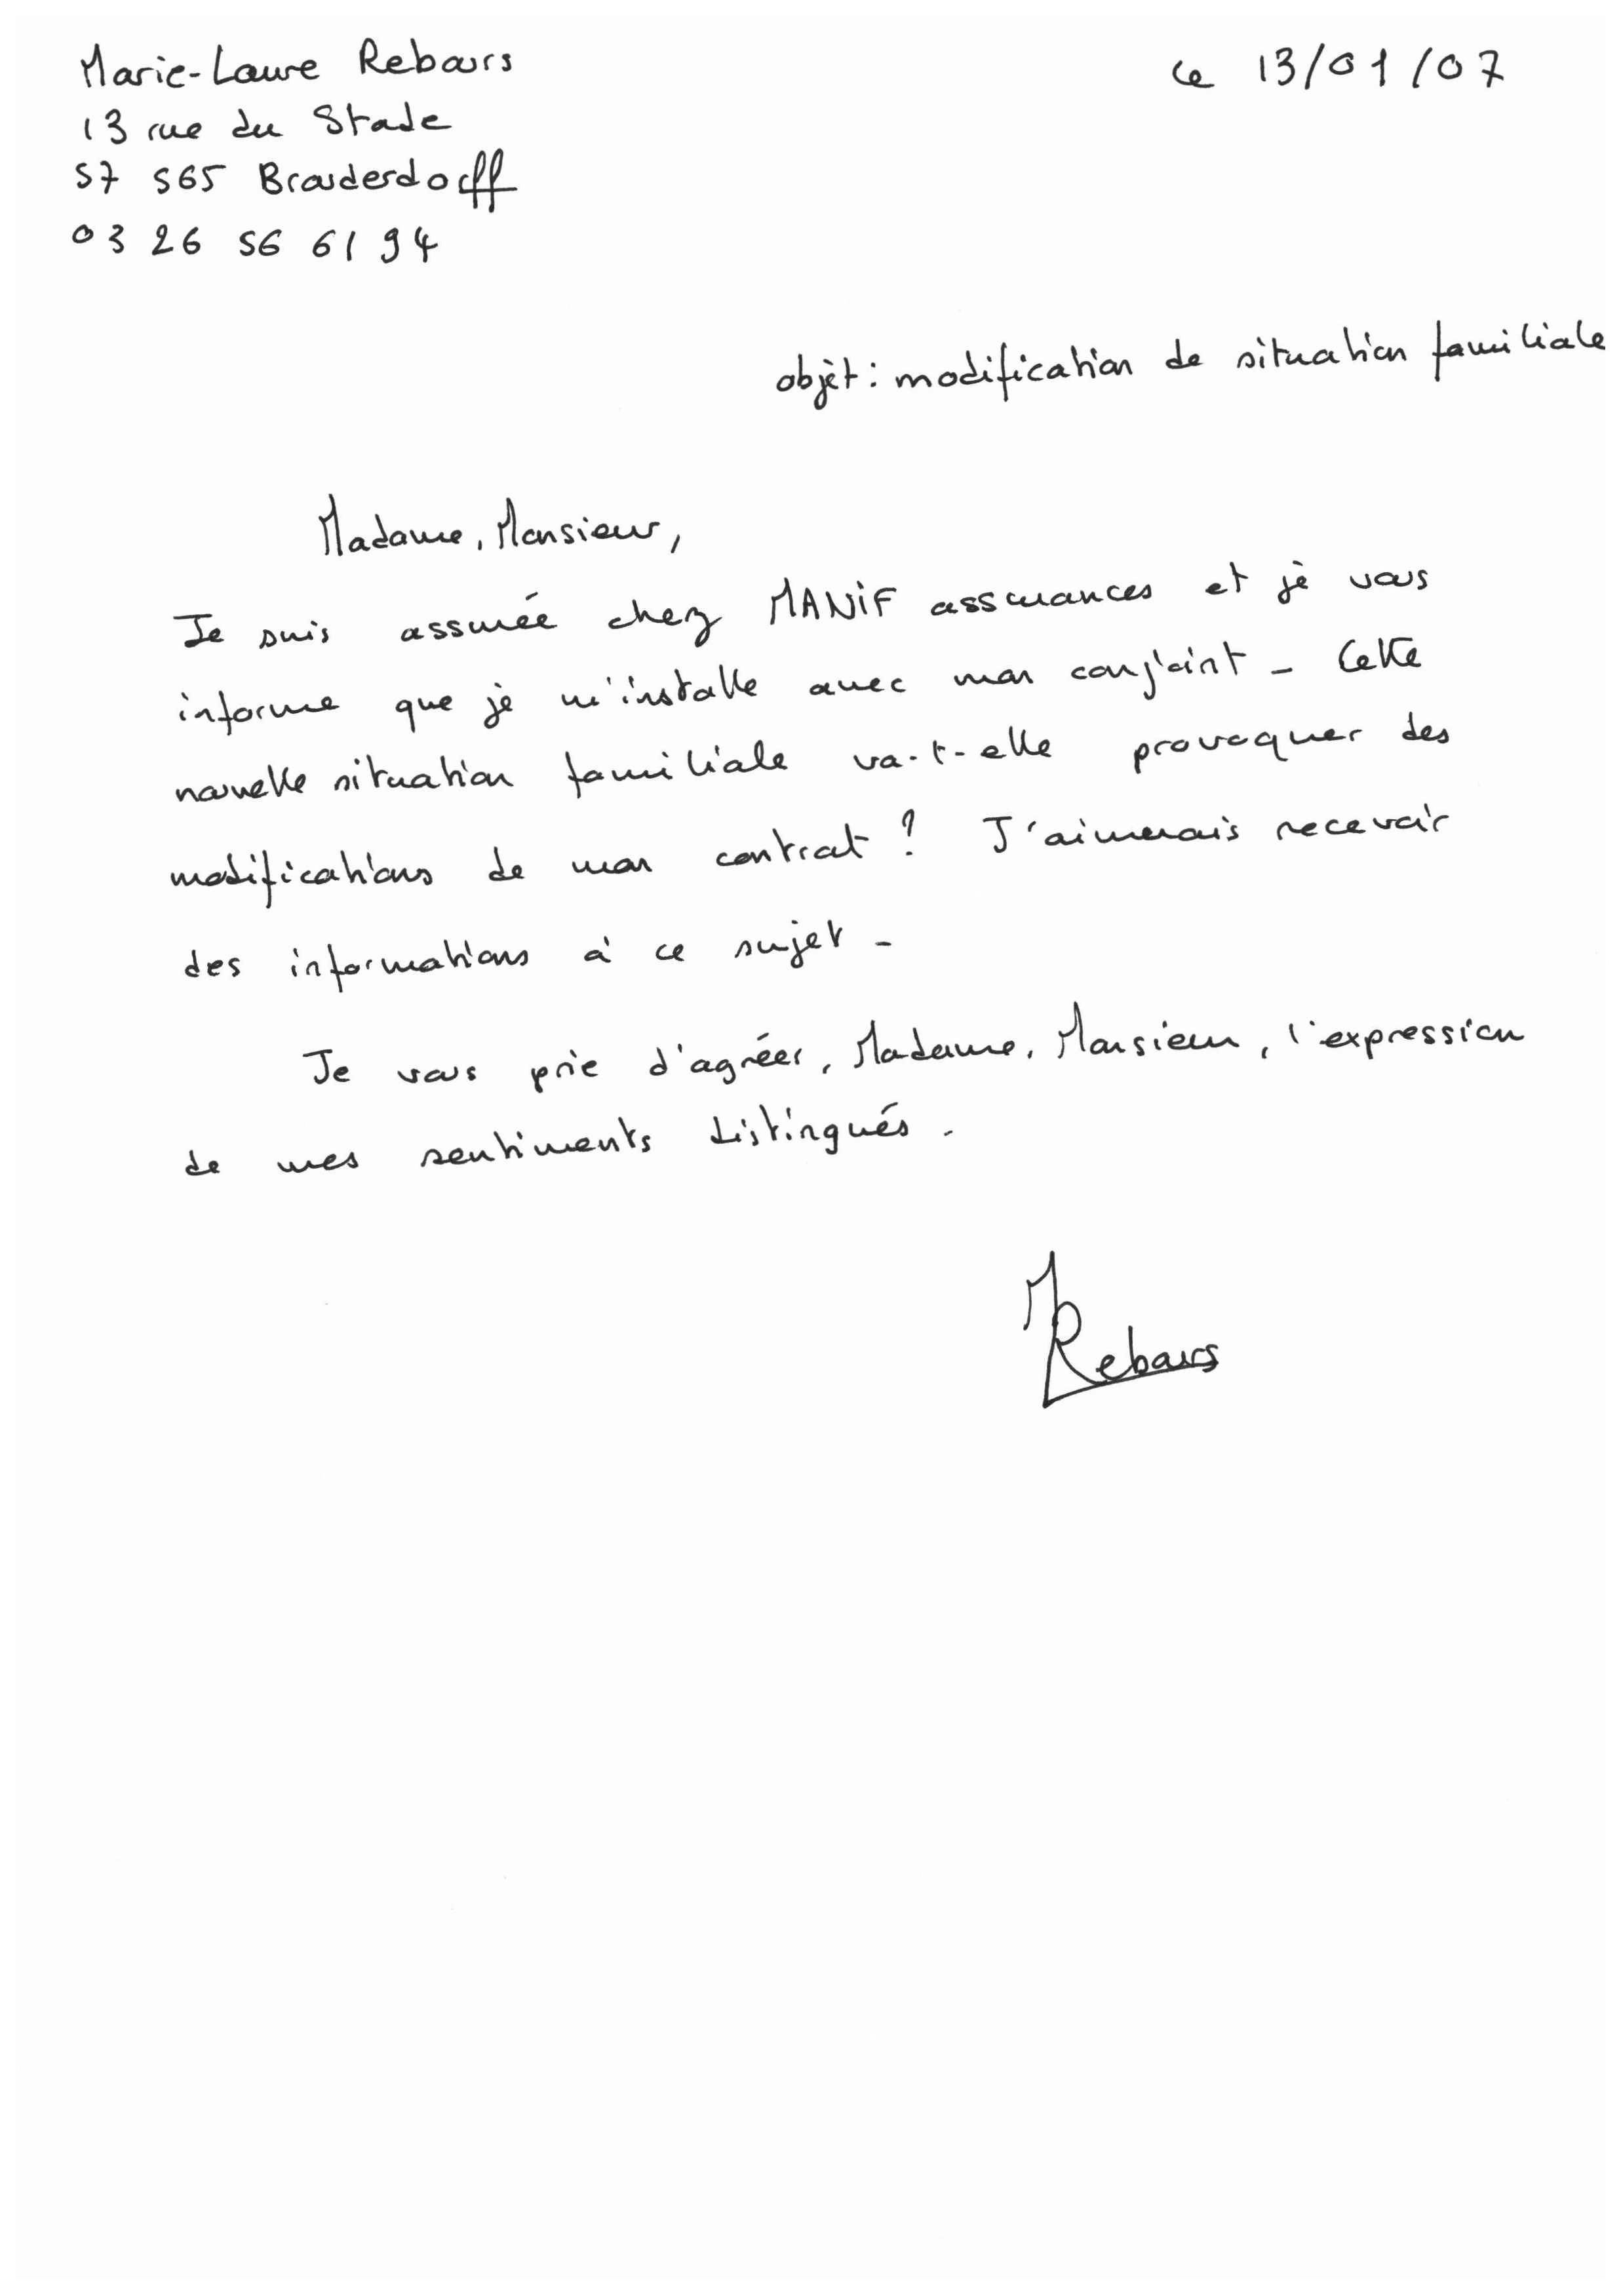 Marie-Laure Rebours
ce 13/01/07
13 rue du Stade
57 565 Brouderdorff
03 26 56 61 94
objet: modification de situation familiale
Madame, Monsieur,
Je suis assurée chez MANiF assurances et je vous
informe que je m'installe avec mon conjoint - Cette
nouvelle situation familiale va-t-elle provoquer des
modifications de mon contrat ? J'aimerais recevoir
des informations à ce sujet -
Je vous prie d'agréer, Madame, Monsieur, l'expression
de mes sentiments distingués.
M Rebours